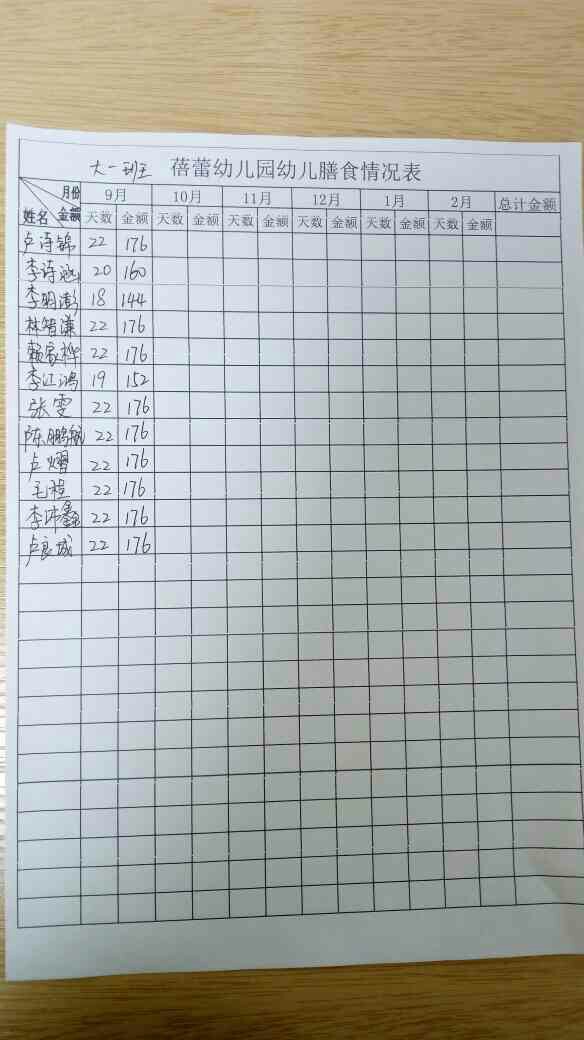 大一班 蓓蕾幼儿园幼儿膳食情况表
月份 9月 10月 11月 12月 1月 2月 总计金额
姓名 金额 天数 金额 天数 金额 天数 金额 天数 金额 天数 金额 天数 金额
卢诗锦 22 176
李诗涵 20 160
李明澎 18 144
林智谦 22 176
赖家桦 22 176
李江鸿 19 152
张雯 22 176
陈鹏航 22 176
卢熠 22 176
毛程 22 176
李沛鑫 22 176
卢良城 22 176